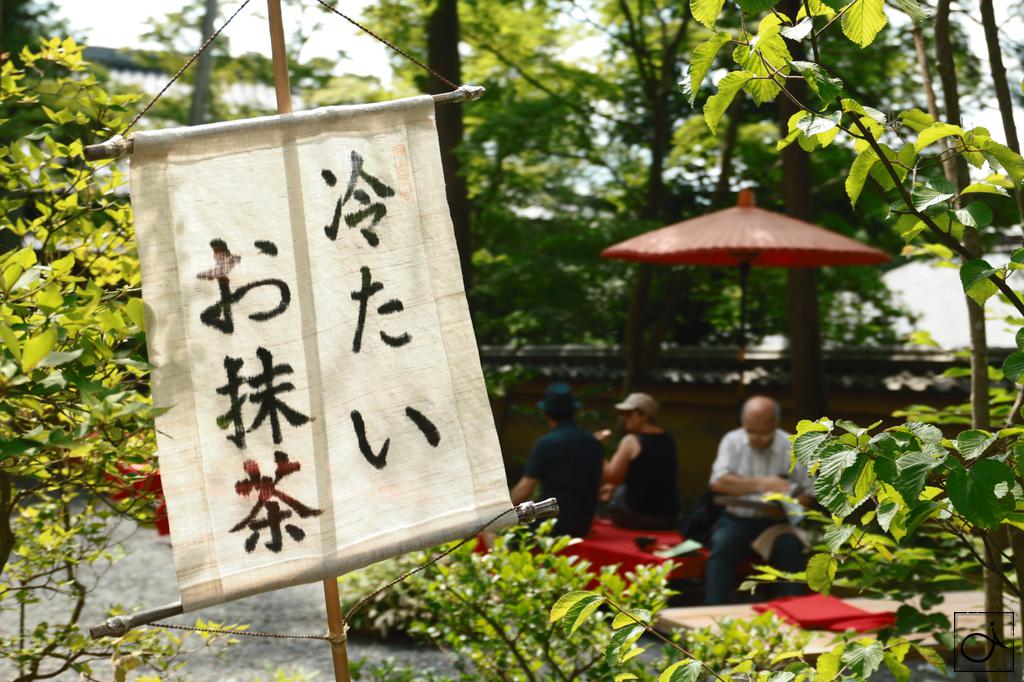 冷たい
お抹茶